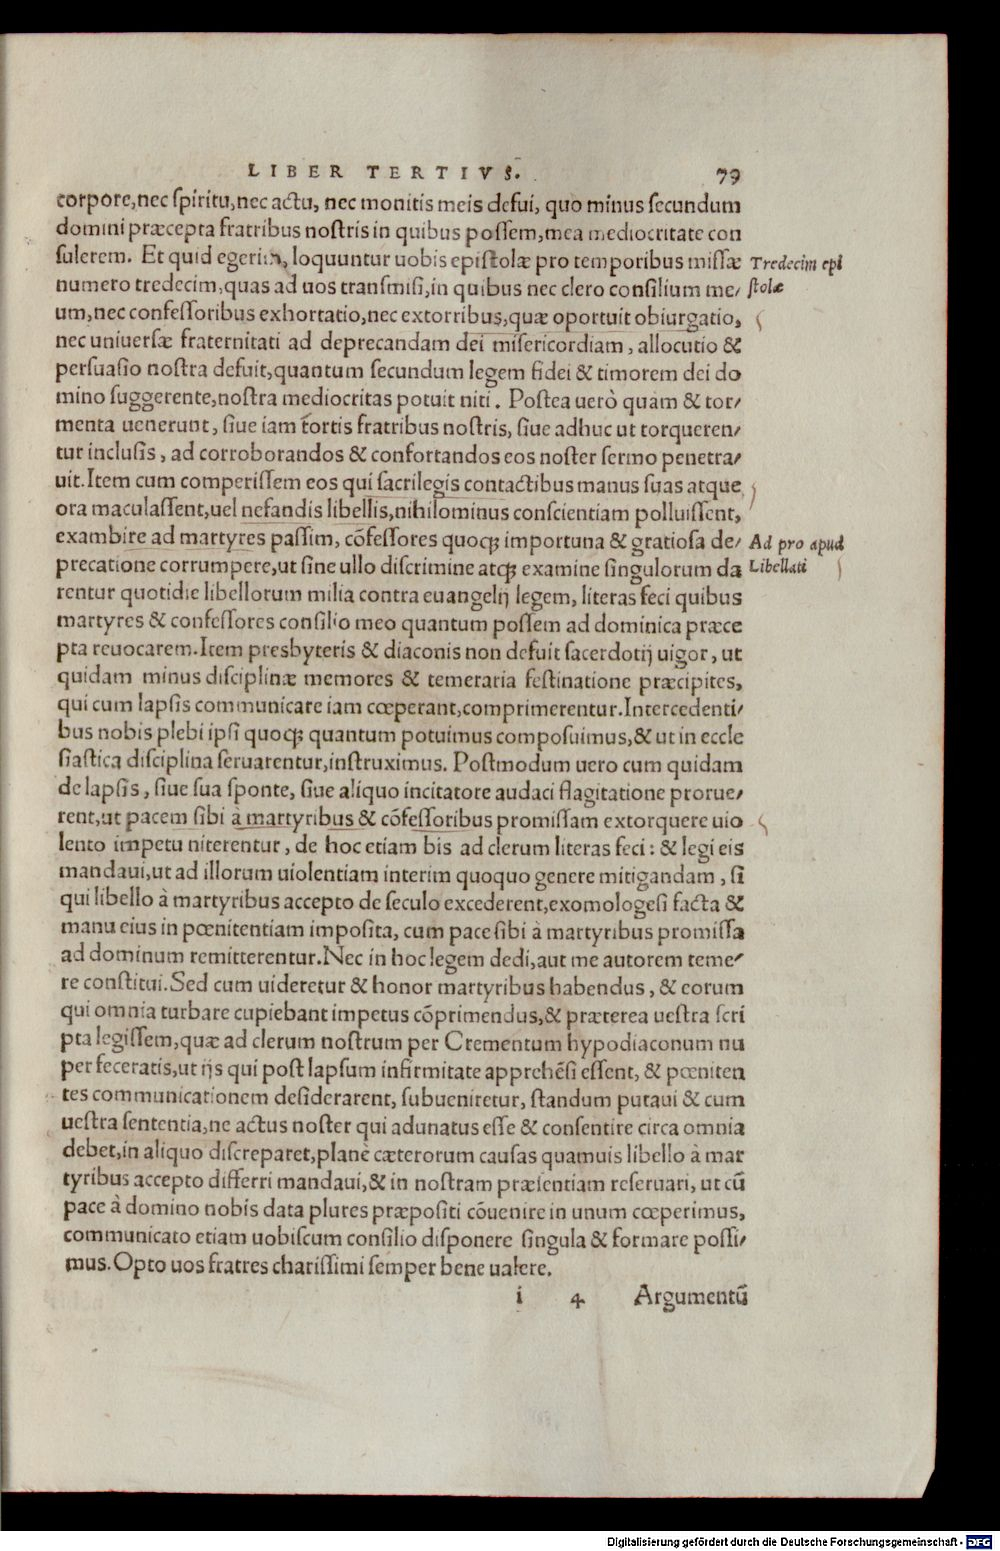 LIBER TERTIVS. 79
corpore,nec spiritu,nec actu, nec monitis meis defui, quo minus secundum
domini præcepta fratribus nostris in quibus possem,mea mediocritate con
sulerem. Et quid egerim, loquuntur uobis epistolæ pro temporibus missæ
Tredecim epi
numero tredecim,quas ad uos transmisi,in quibus nec clero consilium me/
stolæ
um,nec confessoribus exhortatio,nec extorribus,quæ oportuit obiurgatio,
nec uniuersæ fraternitati ad deprecandam dei misericordiam, allocutio &
persuasio nostra defuit,quantum secundum legem fidei & timorem dei do
mino suggerente,nostra mediocritas potuit niti. Postea uerò quàm & tor/
menta uenerunt, siue iam tortis fratribus nostris, siue adhuc ut torqueren/
tur inclusis, ad corroborandos & confortandos eos noster sermo penetra/
uit.Item cum comperissem eos qui sacrilegis contactibus manus suas atque
ora maculassent,uel nefandis libellis,nihilominus conscientiam polluissent,
exambire ad martyres passim, cõfessores quoqꝫ importuna & gratiosa de/
Ad pro apud
precatione corrumpere,ut sine ullo discrimine atqꝫ examine singulorum da
Libellati
rentur quotidie libellorum milia contra euangelij legem, literas feci quibus
martyres & confessores consilio meo quantum possem ad dominica præce
pta reuocarem.Item presbyteris & diaconis non defuit sacerdotij uigor, ut
quidam minus disciplinæ memores & temeraria festinatione præcipites,
qui cum lapsis communicare iam cœperant,comprimerentur.Intercedenti/
bus nobis plebi ipsi quoqꝫ quantum potuimus composuimus,& ut in eccle
siastica disciplina seruarentur,instruximus. Postmodum uero cum quidam
de lapsis, siue sua sponte, siue aliquo incitatore audaci flagitatione prorue/
rent,ut pacem sibi à martyribus & cõfessoribus promissam extorquere uio
lento impetu niterentur, de hoc etiam bis ad clerum literas feci: & legi eis
mandaui,ut ad illorum uiolentiam interim quoquo genere mitigandam, si
qui libello à martyribus accepto de seculo excederent,exomologesi facta &
manu eius in pœnitentiam imposita, cum pace sibi à martyribus promissa
ad dominum remitterentur.Nec in hoc legem dedi,aut me autorem teme/
re constitui.Sed cum uideretur & honor martyribus habendus, & eorum
qui omnia turbare cupiebant impetus cõprimendus,& præterea uestra scri
pta legissem,quæ ad clerum nostrum per Crementum hypodiaconum nu
per feceratis,ut ijs qui post lapsum infirmitate apprehẽsi essent, & pœniten
tes communicationem desiderarent, subueniretur, standum putaui & cum
uestra sententia,ne actus noster qui adunatus esse & consentire circa omnia
debet,in aliquo discreparet,planè cæterorum causas quamuis libello à mar
tyribus accepto differri mandaui,& in nostram præsentiam reseruari, ut cũ
pace à domino nobis data plures præpositi cõuenire in unum cœperimus,
communicato etiam uobiscum consilio disponere singula & formare possi/
mus.Opto uos fratres charissimi semper bene ualere.
i 4 Argumentũ
Digitalisierung gefördert durch die Deutsche Forschungsgemeinschaft - DFG